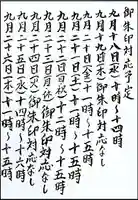 御朱印対応予定
九月十八日(水)十時〜十四時
九月十九日(木)御朱印対応なし
九月二十日(金)十一時〜十五時
九月二十二日(日・祝)十二時〜十五時
九月二十三日(月・祝)十二時〜十五時
九月二十四日(火)御朱印対応なし
九月二十五日(水)十四時〜十六時
九月二十六日(木)十時〜十五時